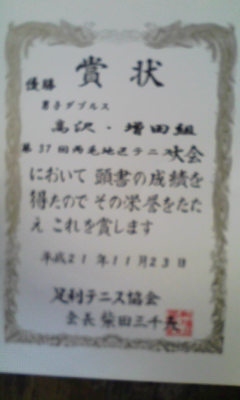 賞状
優勝
男子ダブルス
高沢・増田組
第37回両毛地区テニス大会
において 頭書の成績を
得たので その栄誉をたた
え これを賞します
平成21年11月23日
足利テニス協会
会長 柴田三千